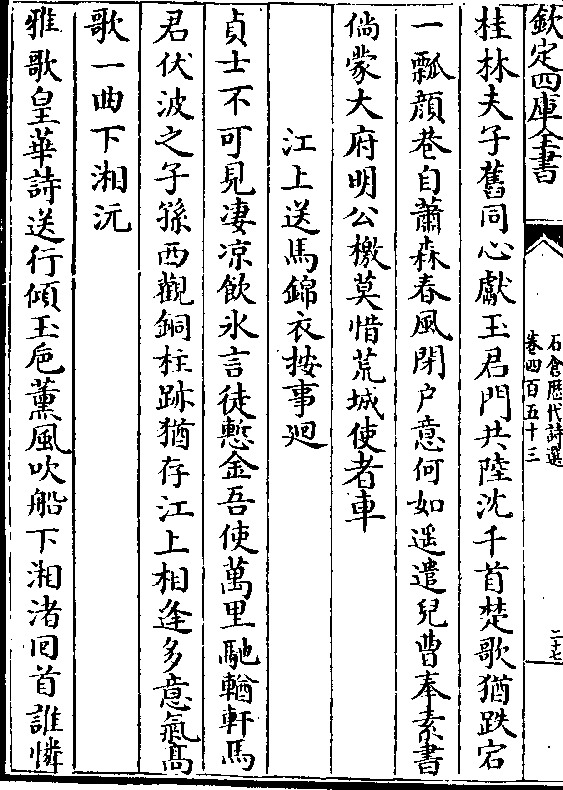 欽定四庫全書
石倉歴代詩選
卷四百五十三
二十七
桂林夫子舊同心獻玉君門共陸沈千首楚歌猶跌宕
一瓢顔巷自蕭森春風閉户意何如遥遣兒曹奉素書
倘蒙大府明公檄莫惜荒城使者車
江上送馬錦衣按事廻
貞士不可見凄凉飲氷言徒慙金吾使萬里馳輶軒馬
君伏波之子孫西觀銅柱跡猶存江上相逢多意氣髙
歌一曲下湘沅
雅歌皇華詩送行傾玉巵薰風吹船下湘渚回首誰憐